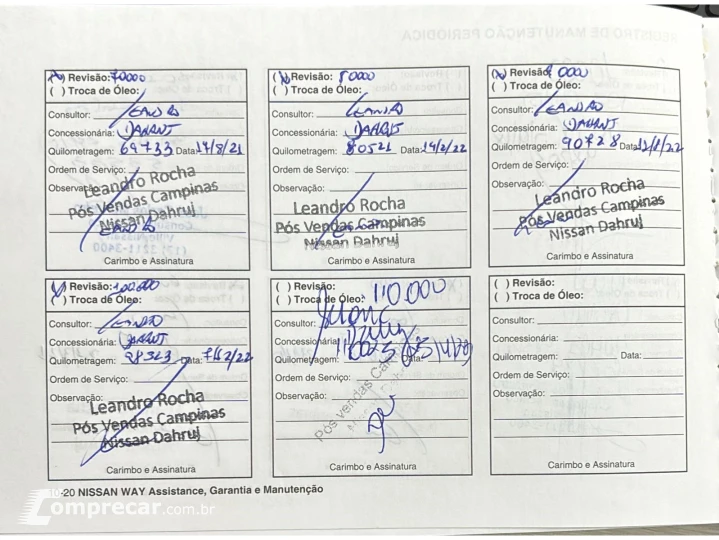 REGISTRO DE MANUTENÇÃO PERIÓDICA
(✓) Revisão: 70000
( ) Troca de Óleo:
Consultor: LEANDRO
Concessionária: DAHRUJ
Quilometragem: 69733 Data: 17/8/21
Ordem de Serviço:
Observação:
Leandro Rocha
Pós Vendas Campinas
Nissan Dahruj
Carimbo e Assinatura
(X) Revisão: 80000
( ) Troca de Óleo:
Consultor: LEANDRO
Concessionária: DAHRUJ
Quilometragem: 80521 Data: 14/2/22
Ordem de Serviço:
Observação:
Leandro Rocha
Pós Vendas Campinas
Nissan Dahruj
Carimbo e Assinatura
(X) Revisão: 9 0000
( ) Troca de Óleo:
Consultor: LEANDRO
Concessionária: DAHRUJ
Quilometragem: 90728 Data:
Ordem de Serviço:
Observação:
Leandro Rocha
Pós Vendas Campinas
Nissan Dahruj
Carimbo e Assinatura
(✓) Revisão: 100000
( ) Troca de Óleo:
Consultor: LEANDRO
Concessionária: DAHRUJ
Quilometragem: 98323 Data: 7/12/22
Ordem de Serviço:
Observação:
Leandro Rocha
Pós Vendas Campinas
Nissan Dahruj
Carimbo e Assinatura
( ) Revisão:
( ) Troca de Óleo: 110.000
Consultor:
Concessionária:
Quilometragem: Data:
Ordem de Serviço:
Observação:
Pós Vendas
Carimbo e Assinatura
( ) Revisão:
( ) Troca de Óleo:
Consultor:
Concessionária:
Quilometragem: Data:
Ordem de Serviço:
Observação:
Carimbo e Assinatura
-20 NISSAN WAY Assistance, Garantia e Manutenção
comprecar.com.br